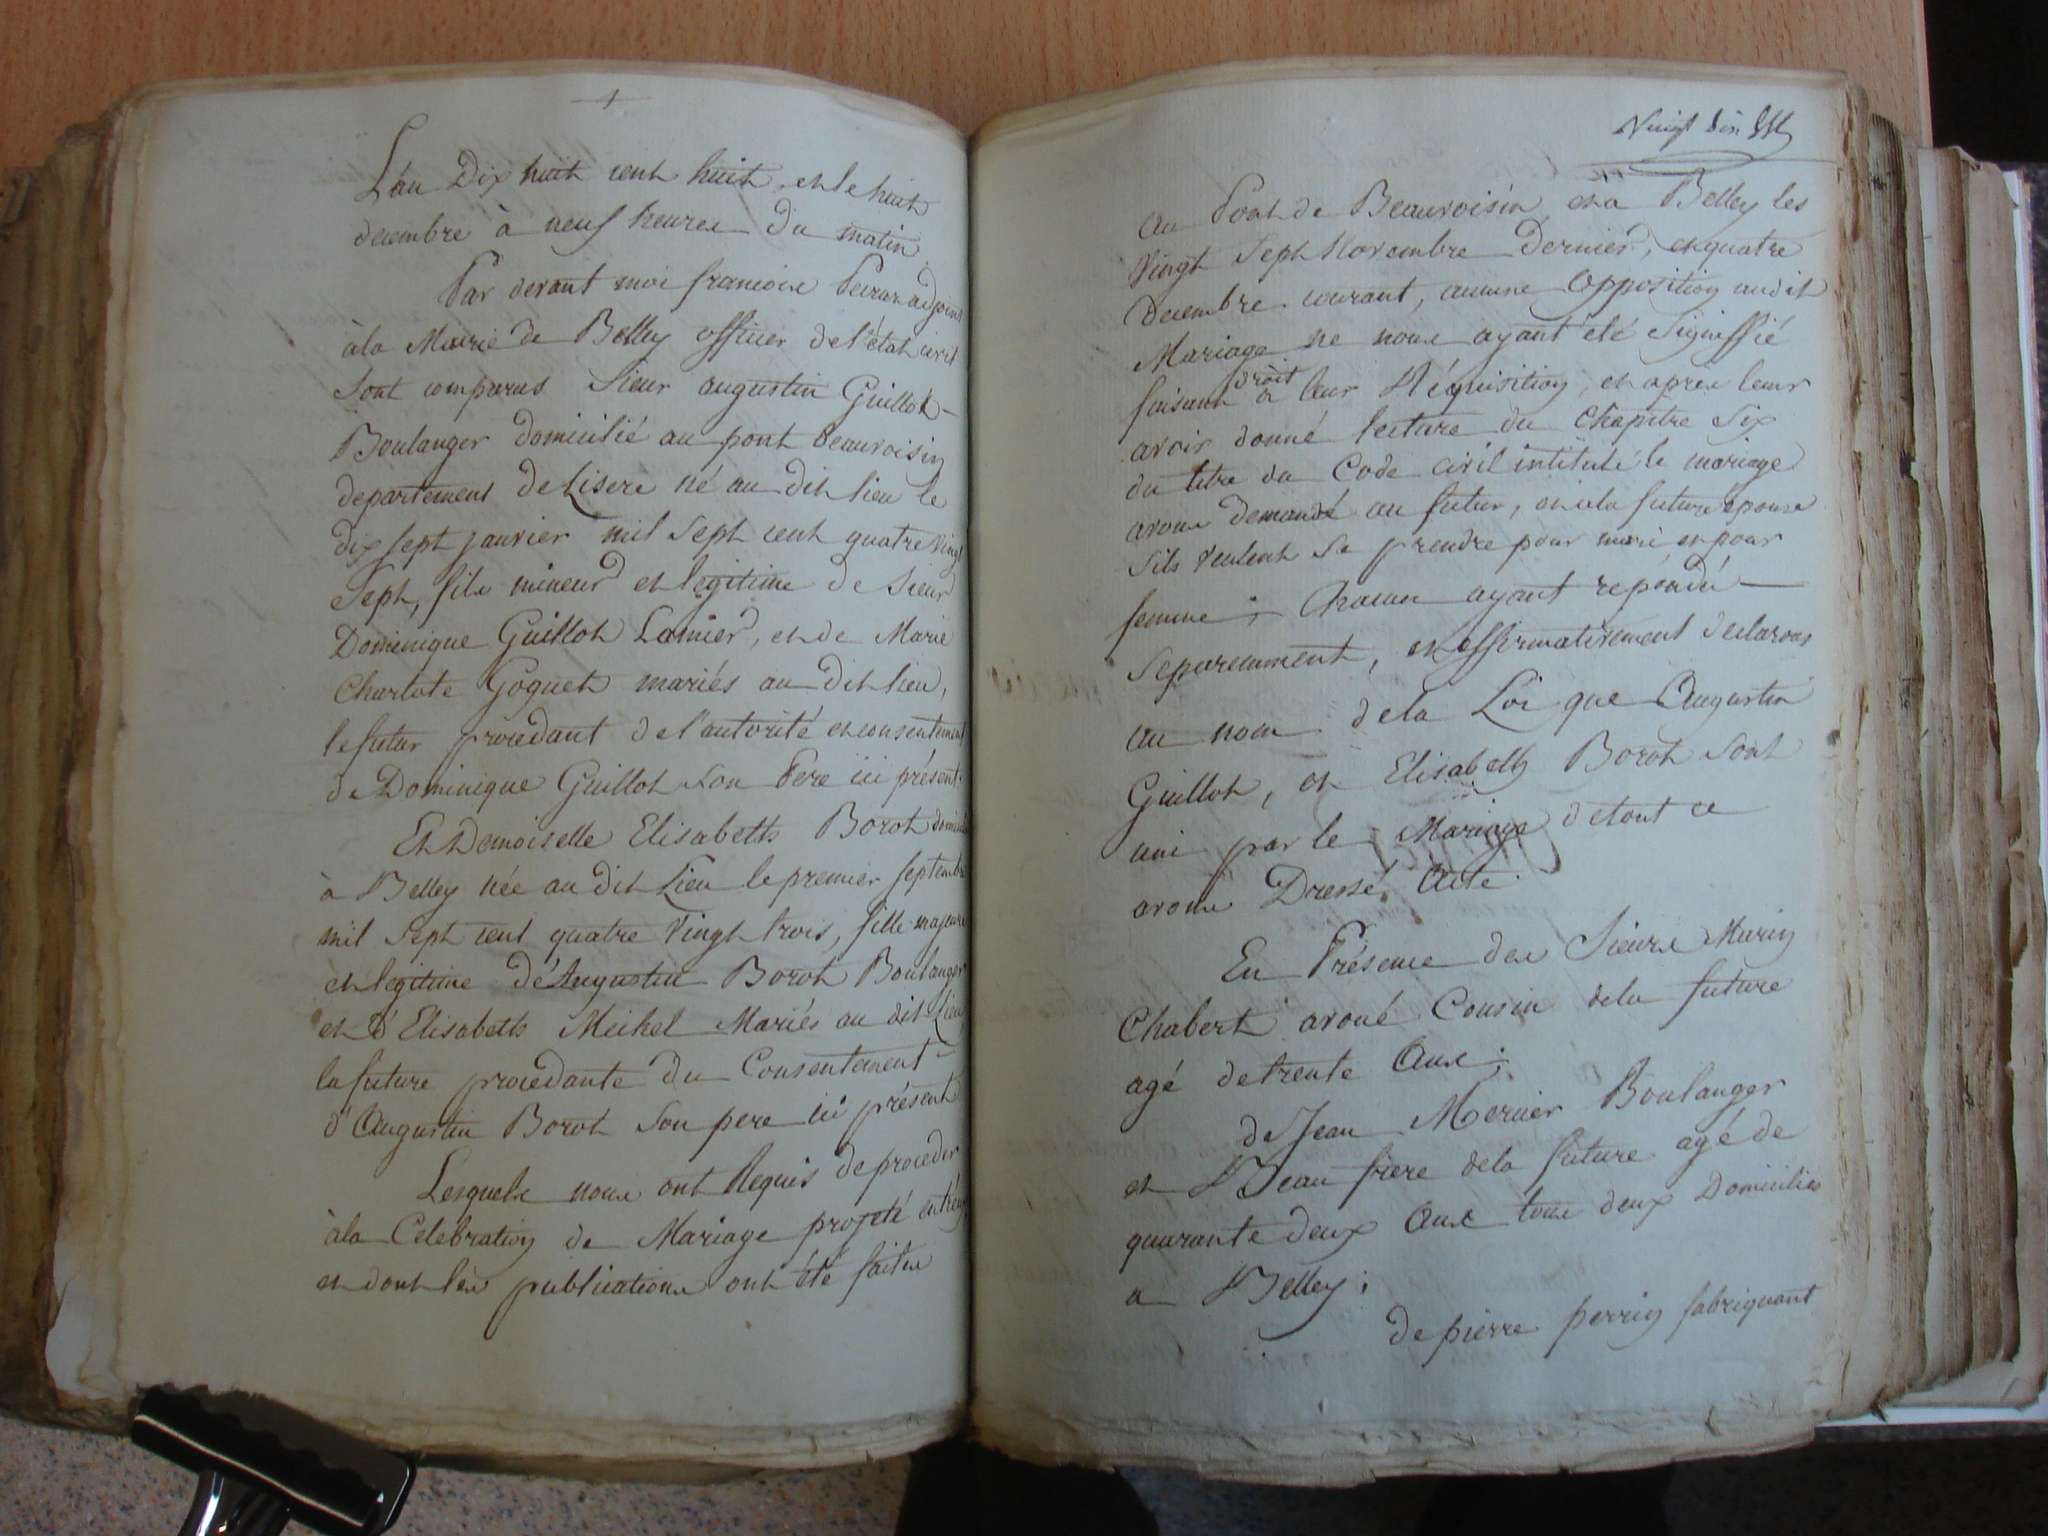 L'an Dix huit cent huit et le huit
decembre à neuf heures du matin
Par devant moi francois Peizon adjoint
à la Mairie de Belley officier de l'état civil
sont comparus Sieur augustin Guillot
Boulanger domicilié au pont beauvoisin
departement de Lisere né au dit lieu le
dix sept janvier mil sept cent quatre vingt
Sept, fils mineur et legitime de Sieur
Dominique Guillot Lainier, et de Marie
Charlote Goguet mariés au dit lieu,
le futur procédant de l'autorité et consentement
de Dominique Guillot son Pere ici présent
Et Demoiselle Elisabeth Borot
à Belley née au dit Lieu le premier septembre
mil sept cent quatre vingt trois, fille majeure
et legitime d'Augustin Borot Boulanger
et d'Elisabeth Meikel Mariés au dit Lieu
la future procedante du Consentement
d'Augustin Borot son pere ici présent
Lesquels nous ont Requis de procéder
à la Célébration de Mariage projeté
et dont les publications ont été faites
Vingt
au Pont de Beauvoisin et a Belley les
vingt Sept Novembre Dernier, et quatre
Decembre courant, aucune Opposition audit
Mariage ne nous ayant été Signiffié
faisant droit a leur Réquisition, et après leur
avoir donné lecture du Chapitre Six
du titre du Code civil intitulé le mariage
avons demandé au futur, et a la future épouse
Sils veulent se prendre pour mari et pour
femme; Chacun ayant répondu
Separemment, et affirmativement declarons
au nom de la Loi que Augustin
Guillot, et Elisabeth Borot sont
uni par le Mariage de tout ce
avons Dressé Acte.
En Présence des Sieurs Marin
Chabert avoué Cousin de la future
agé de trente Ans;
de Jean Mercier Boulanger
et Beau frere de la future agé de
quarante deux Ans tous deux Domiciliés
a Belley;
de pierre perrin fabriquant